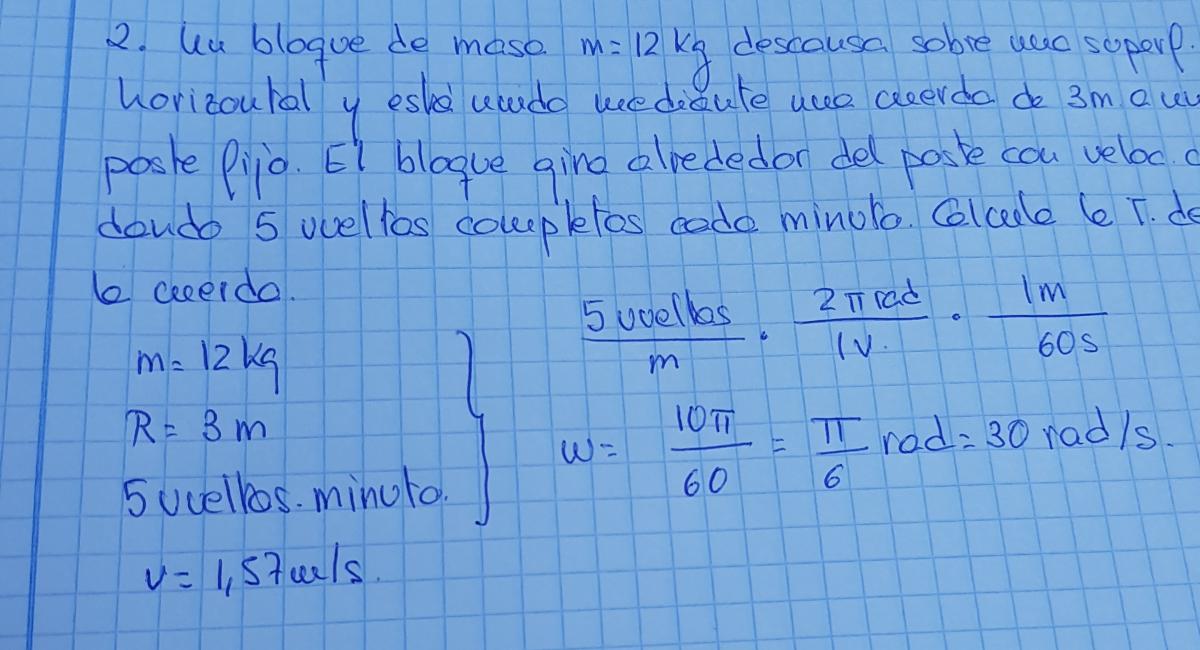 2. Un bloque de masa m=12kg descansa sobre una superf.
horizontal y está unido mediante una cuerda de 3m a un
poste fijo. El bloque gira alrededor del poste con veloc. c
dando 5 vueltas completas cada minuto. Calcula la T. de
la cuerda.
5 vueltas/m · 2π rad/1v. · 1m/60s
m= 12kg
R= 3m
w= 10π/60 = π/6 rad = 30 rad/s.
5 vueltas. minuto.
v= 1,57m/s.